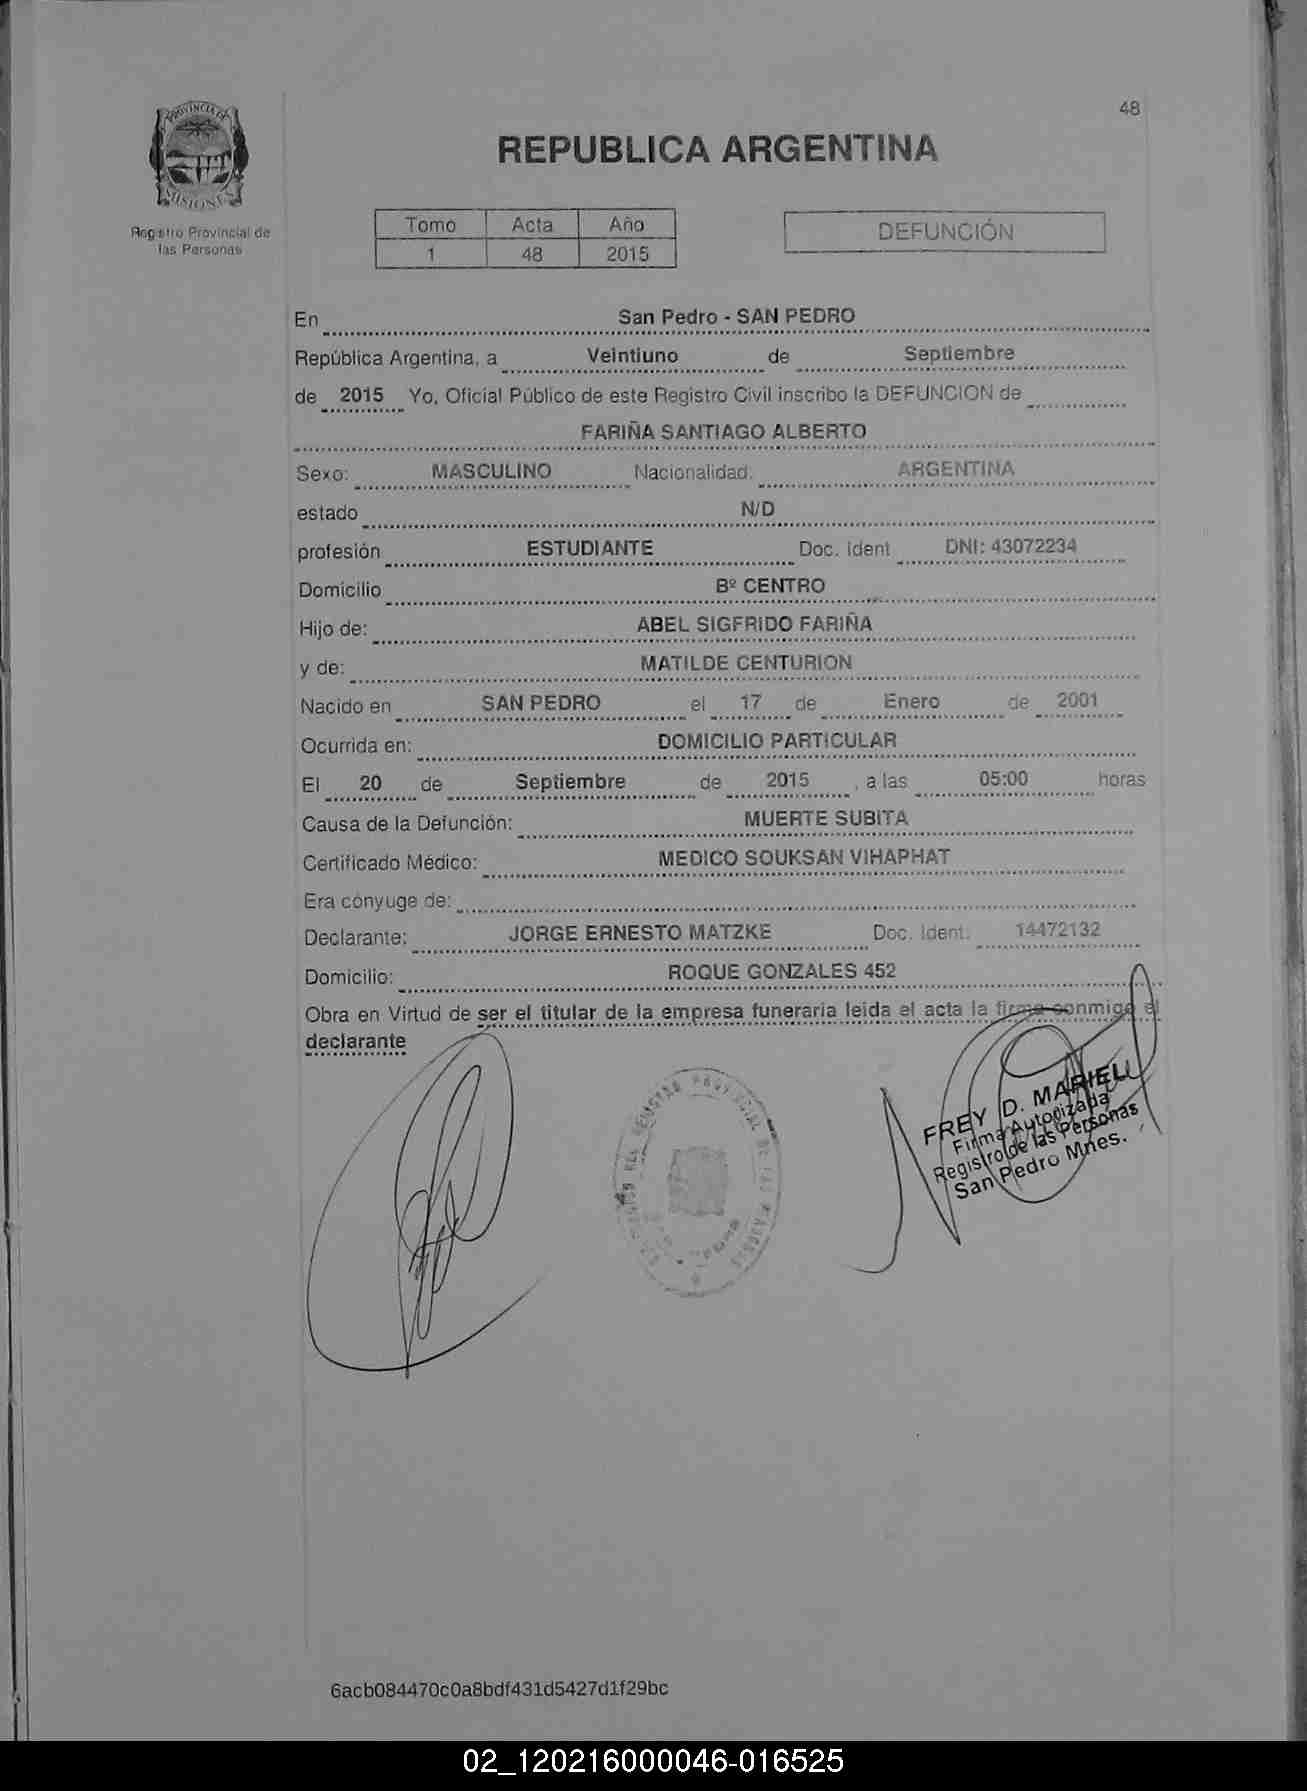 48
PROVINCIA DE
MISIONES
Registro Provincial de
las Personas
REPUBLICA ARGENTINA
Tomo Acta Año
1 48 2015
DEFUNCIÓN
En San Pedro - SAN PEDRO
República Argentina, a Veintiuno de Septiembre
de 2015 Yo, Oficial Público de este Registro Civil inscribo la DEFUNCION de
FARIÑA SANTIAGO ALBERTO
Sexo: MASCULINO Nacionalidad: ARGENTINA
estado N/D
profesión ESTUDIANTE Doc. Ident DNI: 43072234
Domicilio Bº CENTRO
Hijo de: ABEL SIGFRIDO FARIÑA
y de: MATILDE CENTURION
Nacido en SAN PEDRO el 17 de Enero de 2001
Ocurrida en: DOMICILIO PARTICULAR
El 20 de Septiembre de 2015 , a las 05:00 horas
Causa de la Defunción: MUERTE SUBITA
Certificado Médico: MEDICO SOUKSAN VIHAPHAT
Era cónyuge de:
Declarante: JORGE ERNESTO MATZKE Doc. Ident: 14472132
Domicilio: ROQUE GONZALES 452
Obra en Virtud de ser el titular de la empresa funeraria leida el acta la firma conmigo el
declarante
FREY D. MARIEL
Firma Autorizada
Registro de las Personas
San Pedro Mnes.
6acb084470c0a8bdf431d5427d1f29bc
02_120216000046-016525